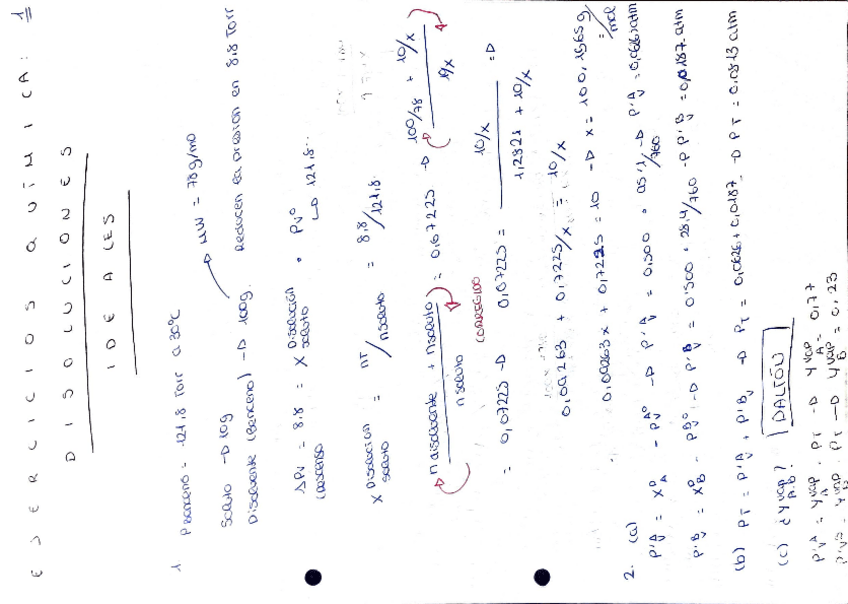 EJERCICIOS QUÍMICA: 1
DISOLUCIONES
IDEALES
1 Pbenceno = 121,8 Torr a 30ºC
Soluto → 10g → MW = 78g/mol
Disolvente (Benceno) → 100g. Reducen la presión en 8,8 Torr
ΔPv = 8,8 = X Disolución soluto · Pvº
(descenso → 121,8..
X Disolución soluto = nT / nsoluto = 8,8/121,8
n disolvente + nsoluto / nsoluto = 0,07225 → 100/78 + 10/x / 10/x
CORREGIDO
= 0,07225 → 0,07225 = 10/x / 1,2821 + 10/x =>
0,09263 + 0,7225/x = 10/x
0,09263x + 0,7225 = 10 → x = 100,1565g/mol
2. (a)
P'vA = XºA · PvAº → P'vA = 0,500 · 95'1/760 → P'vA = 0,0626 atm
P'vB = XºB · PvBº → P'vB = 0'500 · 28,4/760 → P'vB = 0,0187 atm
(b) PT = P'vA + P'vB → PT = 0,0626 + 0,0187 → PT = 0,0813 atm
(c) ¿Yvap A,B? DALTON
P'vA = YvapA · PT → YvapA = 0,77
P'vB = YvapB · PT → YvapB = 0,23